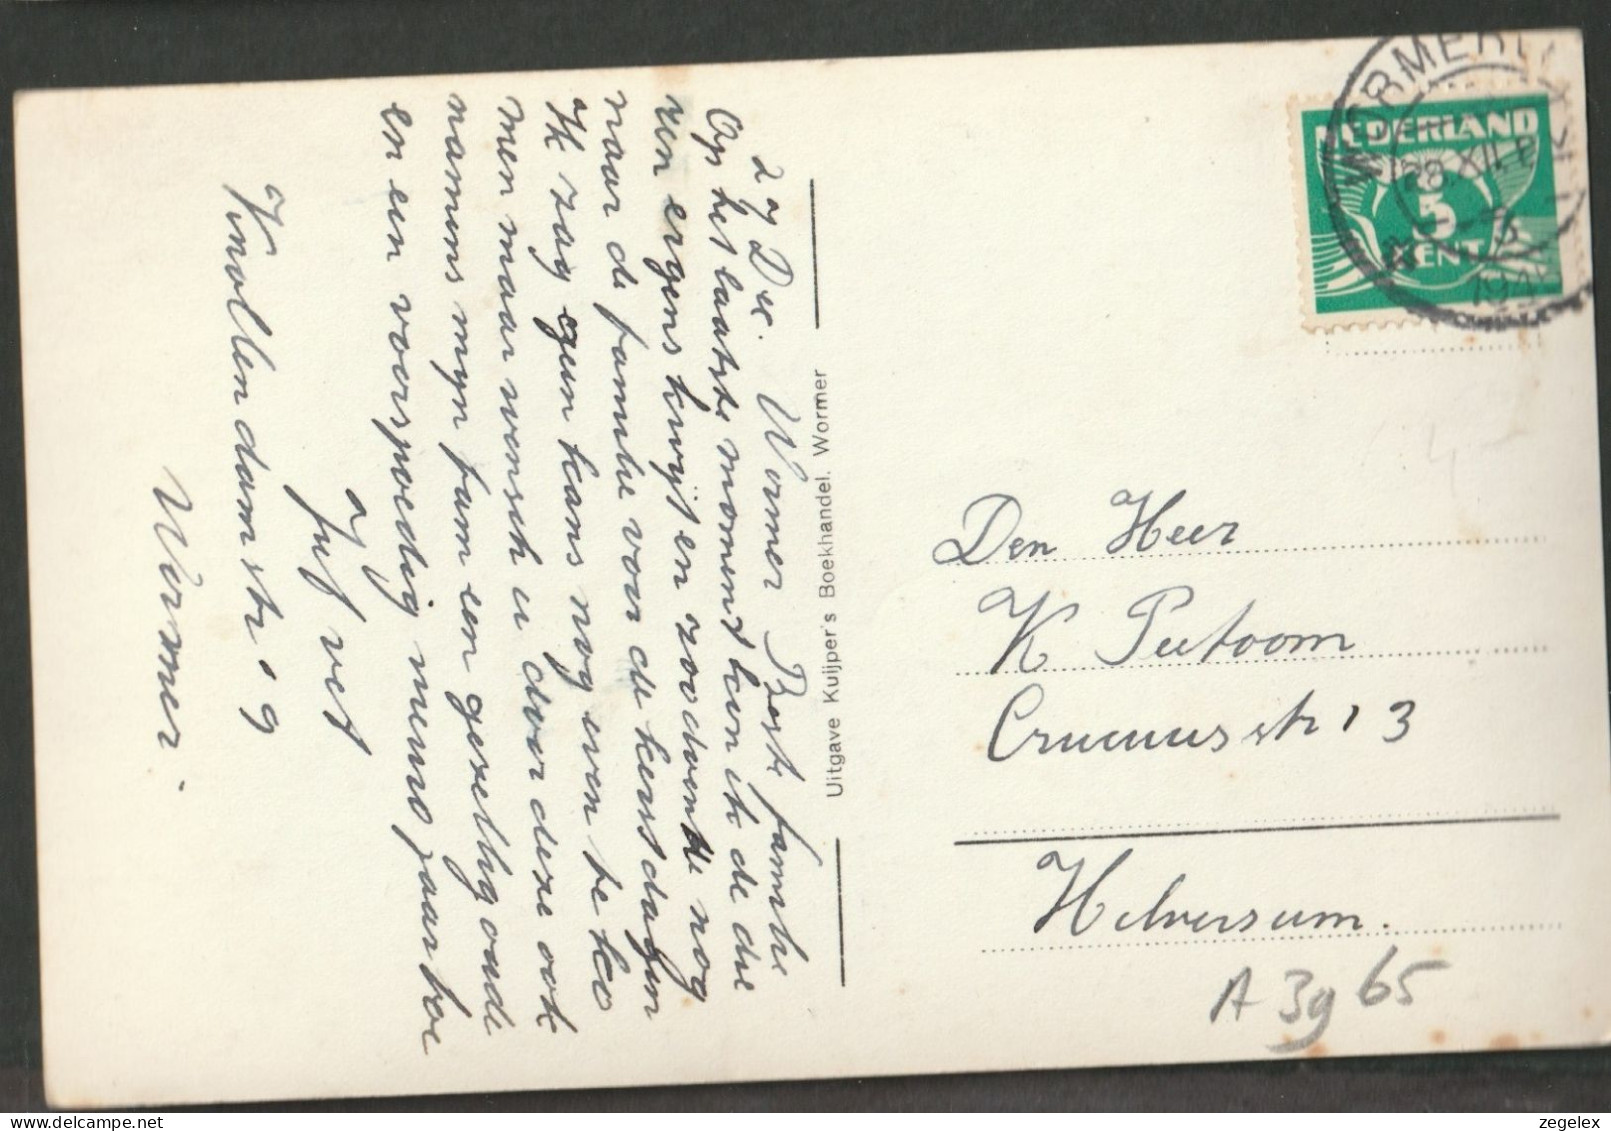 29 Dec. Wormer Beste familie
Op het laatste moment ben ik de die
ergens kwijt en zoodoende nog
naar de familie voor de kerstdagen
Ik zag geen kans nog even te ko
men maar wensch u door deze ook
namens mijn fam een gezellig oude
en een voorspoedig nieuwjaar toe
Juf vet
str. 9
Wormer.
Uitgave Kuijper's Boekhandel. Wormer
WORMERV
28.XII
5
194
NEDERLAND
5
CENT
Den Heer
K Peetoom
str 13
Hilversum.
A 3965
zegelex